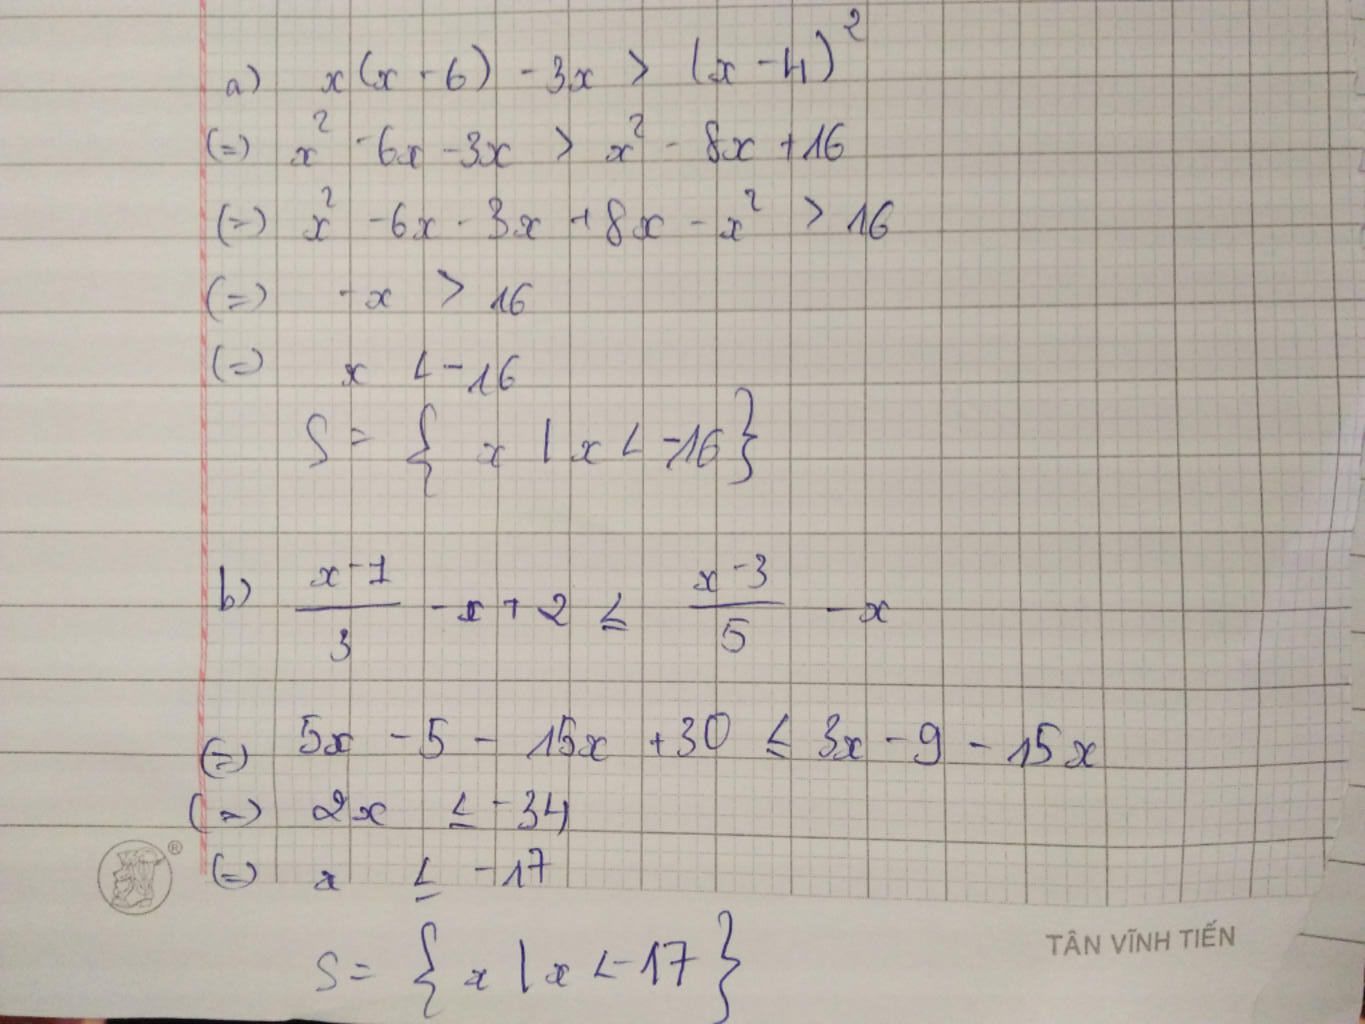 a) x(x - 6) - 3x > (x - 4)²
(=) x² - 6x - 3x > x² - 8x + 16
(=) x² - 6x - 3x + 8x - x² > 16
(=) - x > 16
(=) x < -16
S = { x | x < -16 }
b) (x - 1)/3 - x + 2 ≤ (x - 3)/5 - x
(=) 5x - 5 - 15x + 30 ≤ 3x - 9 - 15x
(=) 2x ≤ -34
(=) x ≤ -17
S = { x | x < -17 }
®
TÂN VĨNH TIẾN